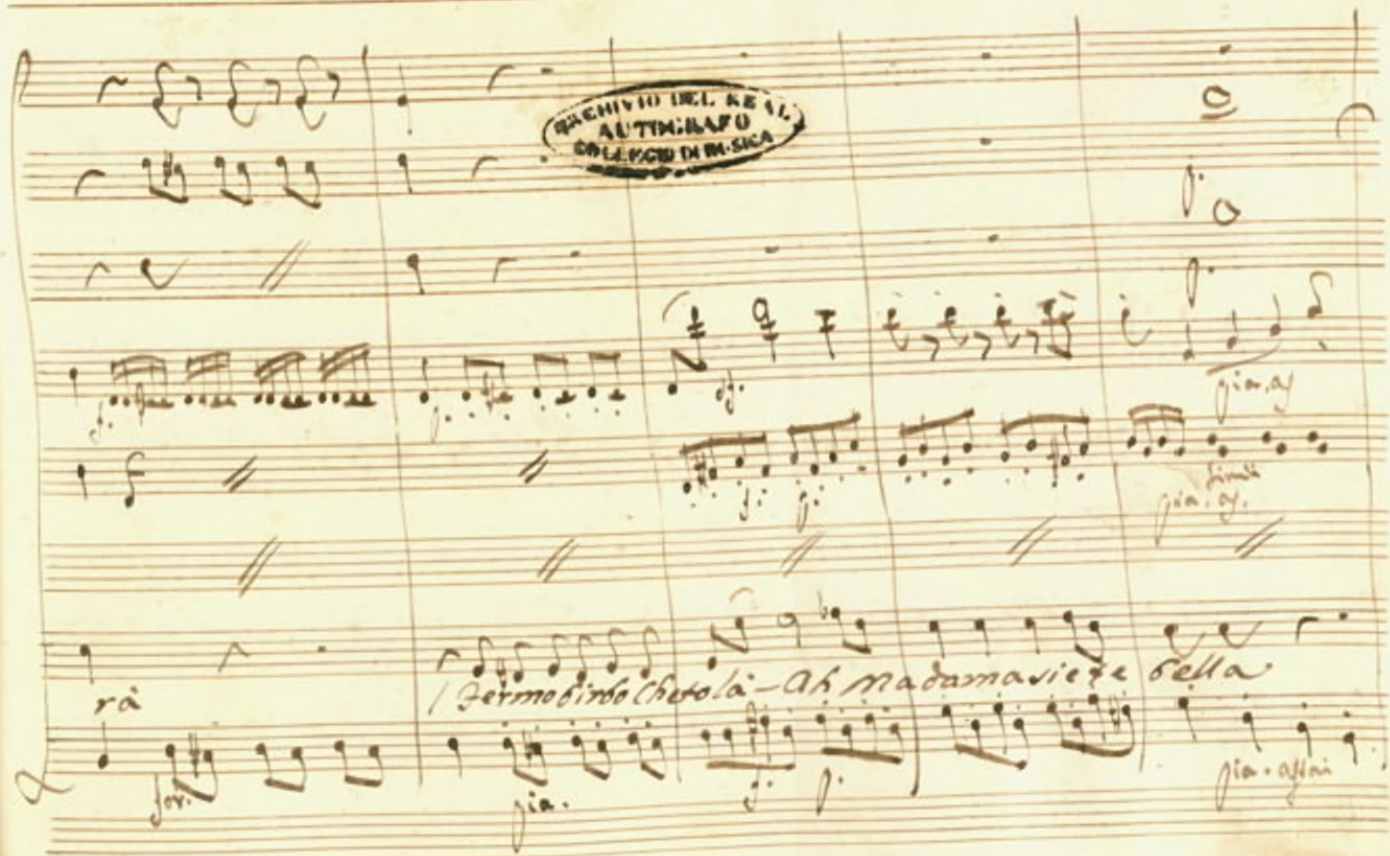 ARCHIVIO DEL REAL
AUTOGRAFO
COLLEGIO DI MUSICA
f.
p.
sf.
p.
p.
pia. as
f. p.
simili
pia. as.
rà
Fermo birbo Cheto là - Ah Madama siete bella
for.
pia.
f. p.
pia. assai